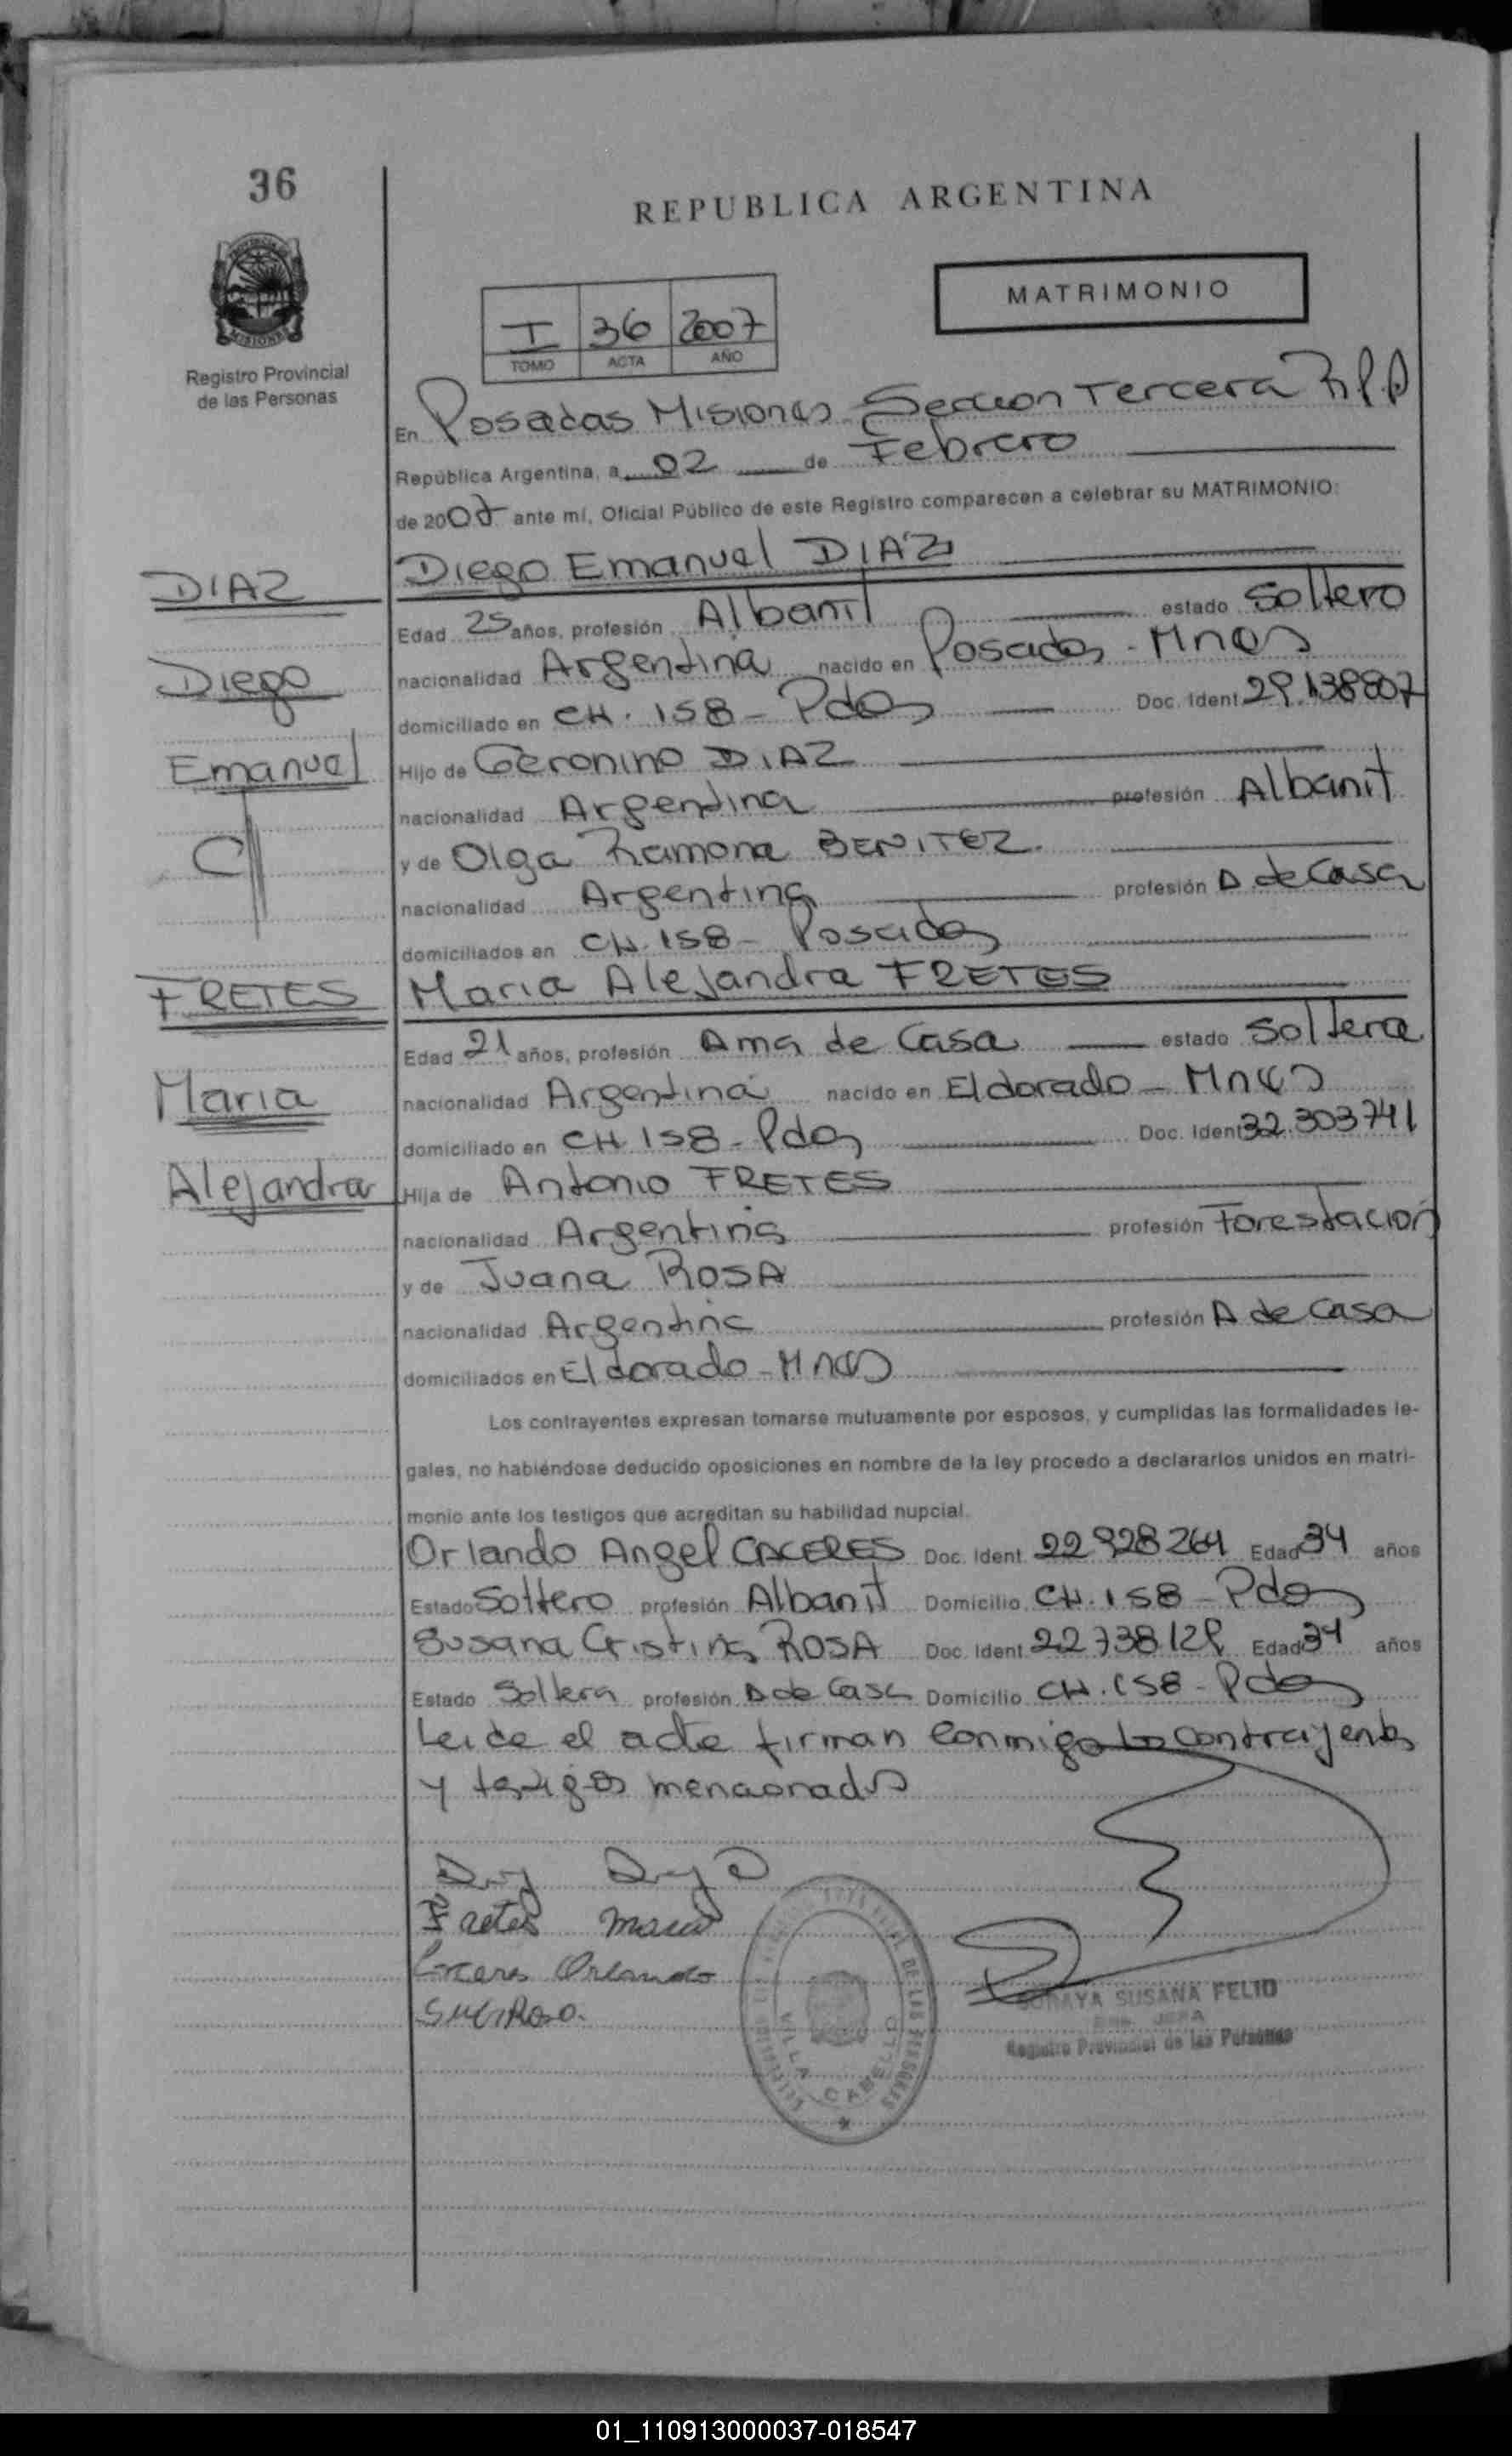 36
REPUBLICA ARGENTINA
MATRIMONIO
I 36 2007
TOMO ACTA AÑO
Registro Provincial
de las Personas
En Posadas Misiones Seccion Tercera R.P.P
República Argentina, a 02 de Febrero
de 2007 ante mí, Oficial Público de este Registro comparecen a celebrar su MATRIMONIO:
DIAZ
Diego Emanuel DIAZ
Edad 25 años, profesión Albanil estado Soltero
Diego
nacionalidad Argentina nacido en Posadas - Mnes
domiciliado en CH. 158 - Pdas Doc. Ident. 29.138807
Emanuel
Hijo de Geronimo DIAZ
nacionalidad Argentina profesión Albanil
y de Olga Ramona BENITEZ.
C/
nacionalidad Argentina profesión A de Casa
domiciliados en CH. 158 - Posadas
FRETES
Maria Alejandra FRETES
Edad 21 años, profesión Ama de Casa estado Soltera
Maria
nacionalidad Argentina nacido en Eldorado - Mnes
domiciliado en CH 158 - Pdas Doc. Ident 32.303741
Alejandra
Hija de Antonio FRETES
nacionalidad Argentina profesión Forestacion
y de Juana ROSA
nacionalidad Argentina profesión A de Casa
domiciliados en Eldorado - Mnes
Los contrayentes expresan tomarse mutuamente por esposos, y cumplidas las formalidades le-
gales, no habiéndose deducido oposiciones en nombre de la ley procedo a declararlos unidos en matri-
monio ante los testigos que acreditan su habilidad nupcial.
Orlando Angel CACERES Doc. Ident. 22.928264 Edad 34 años
Estado Soltero profesión Albanil Domicilio CH. 158 - Pdas
Susana Cristina ROSA Doc. Ident. 22738129 Edad 34 años
Estado Soltera profesión A de Casa Domicilio CH. 158 - Pdas
Leida el acta firman conmigo los contrayentes
y testigos mencionados
Fretes Maria
Caceres Orlando
SORAYA SUSANA FELIO
JEFA
Registro Provincial de las Personas
DE LAS PERSONAS
VILLA CABELLO
01_110913000037-018547